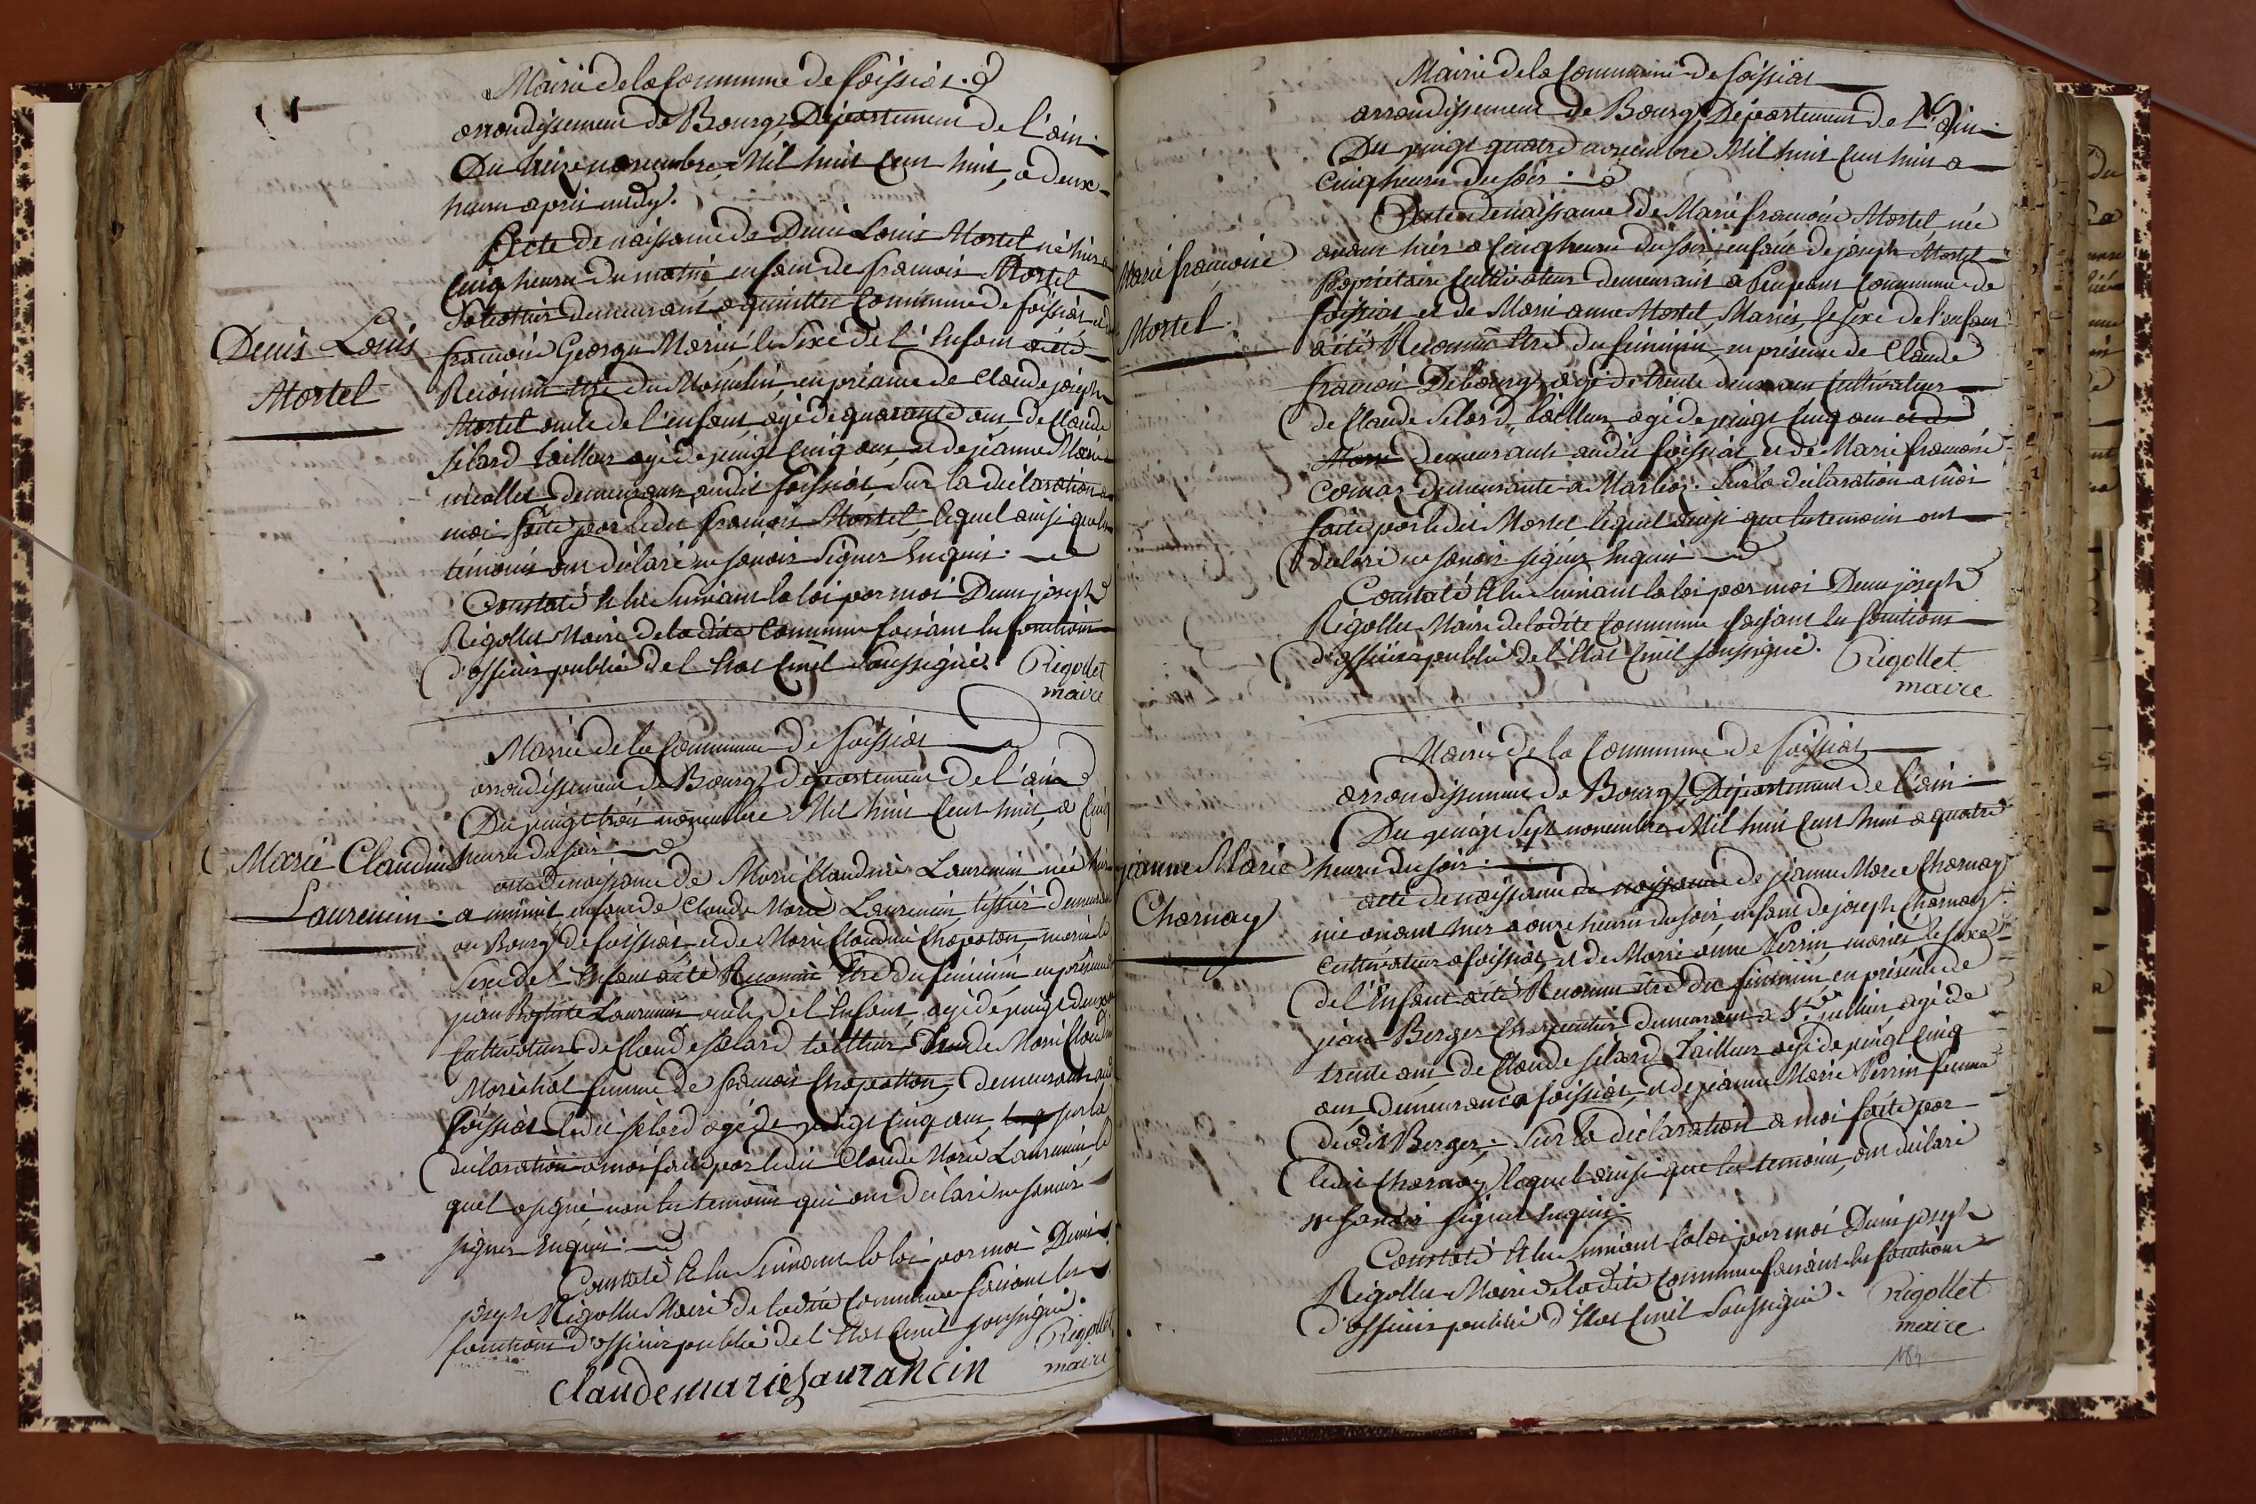 Mairie de la Commune de foissiat
arrondissement de Bourg, Département de l'ain
Du treize novembre Mil huit Cent huit, a deux
heures après midy.
Acte de naissance de Denis Louis Mortel né hier a
Cinq heures du matin enfant de francois Mortel
demeurant a Commune de foissiat et de
francoise George Mariés le sexe de l'Enfant a été
Reconnu être du Masculin, en présence de Claude joseph
Mortel oncle de l'enfant agé de quarante ans, de Claude
silard tailleur agé de vingt cinq ans, et de jeanne Marie
nicollet demeurans audit foissiat, sur la déclaration a
moi faite par ledit francois Mortel, lequel ainsi que les
témoins ont déclaré ne savoir signer Enquis.
Constaté & lu Suivant la loi par moi Denis joseph
Rigollet Maire de ladite Commune faisant les fonctions
d'officier public de l'Etat Civil Soussigné. Rigollet
maire
Denis Louis
Mortel
Mairie de la Commune de foissiat
arrondissement de Bourg, département de l'ain
Du vingt trois novembre Mil huit Cent huit, a Cinq
heures du soir
Marie Claudine
Laurencin
acte de naissance de Marie Claudine Laurencin née hier
a minuit enfant de Claude Marie Laurencin, tissier demeurant
au Bourg de foissiat, et de Marie Claudine Chapaton, mariés le
Sexe de l'Enfant a été Reconnu Etre du féminin en présence de
jean Baptiste Laurencin oncle de l'Enfant, agé de vingt deux ans
Cultivateur, de Claude silard tailleur & de Marie Claudine
Maréchal femme de francois Chapatton, demeurants audit
foissiat ledit silard agé de vingt Cinq ans sur la
déclaration a moi faite par ledit Claude Marie Laurencin le
quel a signé non les temoins qui ont déclaré ne savoir
signer Enquis.
Constaté & lu Suivant la loi par moi Denis
joseph Rigollet Maire de ladite Commune faisant les
fonctions d'officier public de l'Etat Civil soussigné.
Rigollet
maire
Claudemarie Laurancin
Mairie de la Commune de foissiat
arrondissement de Bourg, Département de L'ain
Du vingt quatre novembre Mil huit Cent huit a
Cinq heures du soir.
Marie francoise
Mortel
Acte de naissance de Marie francoise Mortel née
avant hier a Cinq heures du soir, enfant de joseph Mortel
Propriétaire Cultivateur demeurant a Commune de
foissiat et de Marie anne Mortel, Mariés, le sexe de l'enfant
a été Reconnu Etre du féminin, en présence de Claude
francois Debourg, agé de trente deux ans Cultivateur
de Claude silard, tailleur, agé de vingt cinq ans et de
Marie demeurants audit foissiat, et de Marie francoise
demeurante a Marboz. Sur la déclaration a moi
faite par ledit Mortel lequel ainsi que les temoins ont
déclaré ne savoir signer Enquis
Constaté & lu Suivant la loi par moi Denis joseph
Rigollet Maire de ladite Commune faisant les fonctions
d'officier public de l'Etat Civil soussigné. Rigollet
maire
Mairie de la Commune de foissiat
arrondissement de Bourg, Département de l'ain
Du vingt Sept novembre Mil huit Cent huit a quatre
heures du soir.
jeanne Marie
Charnay
acte de naissance de naissance de jeanne Marie Charnay
née avant hier a onze heures du soir, enfant de joseph Charnay
Cultivateur a foissiat, et de Marie anne Perrin mariés le sexe
de l'Enfant a été Reconnu être du féminin, en présence de
jean Berger Charpentier demeurant a St jullien agé de
trente ans de Claude silard tailleur agé de vingt cinq
ans, demeurant a foissiat, et de jeanne Marie Perrin femme
dudit Berger. Sur la déclaration a moi faite par
ledit Charnay lequel ainsi que les temoins, ont déclaré
ne savoir signer enquis.
Constaté & lu Suivant la loi par moi Denis joseph
Rigollet Maire de ladite Commune faisant les fonctions
d'officier public d'Etat Civil Soussigné. Rigollet
maire
184